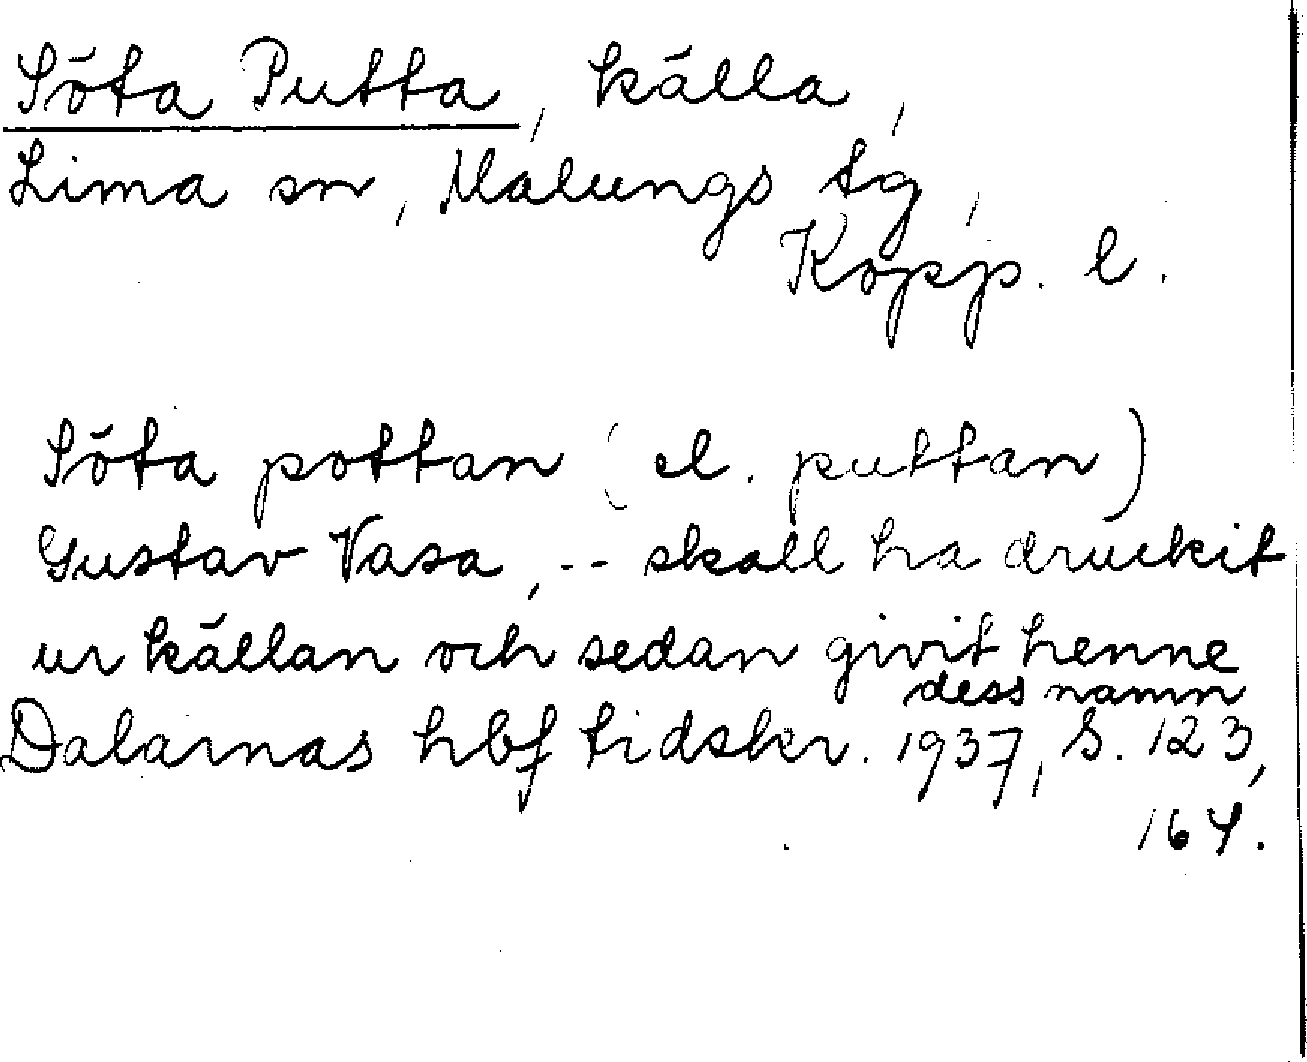 Söta Putta, källa,
Lima sn, Malungs tg,
Kopp. l.
Söta pottan (el. puttan)
Gustav Vasa, -- skall ha druckit
ur källan och sedan givit henne
dess namn
Dalarnas hbf tidskr. 1937, S. 123,
164.